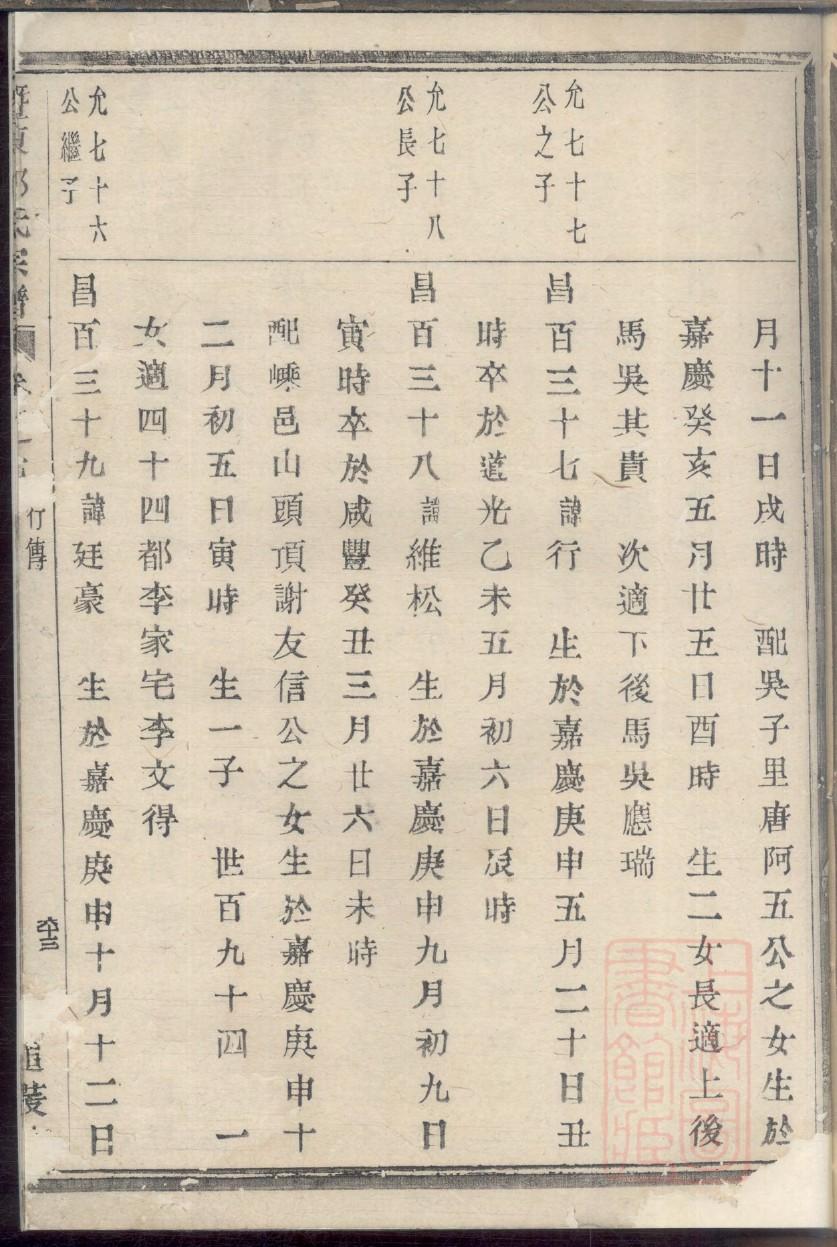 月十一日戌時　配吳子里唐阿五公之女生於
嘉慶癸亥五月廿五日酉時　生二女長適上後
馬吳其貴　次適下後馬吳應瑞
允七十七
公之子
昌百三十七諱行　生於嘉慶庚申五月二十日丑
時卒於道光乙未五月初六日辰時
允七十八
公長子
昌百三十八諱維松　生於嘉慶庚申九月初九日
寅時卒於咸豐癸丑三月廿六日未時
配嵊邑山頭頂謝友信公之女生於嘉慶庚申十
二月初五日寅時　生一子　世百九十四　一
女適四十四都李家宅李文得
允七十六
公繼子
昌百三十九諱廷豪　生於嘉慶庚申十月十二日
東 氏宗譜
行傳
六十三
上海圖書館藏